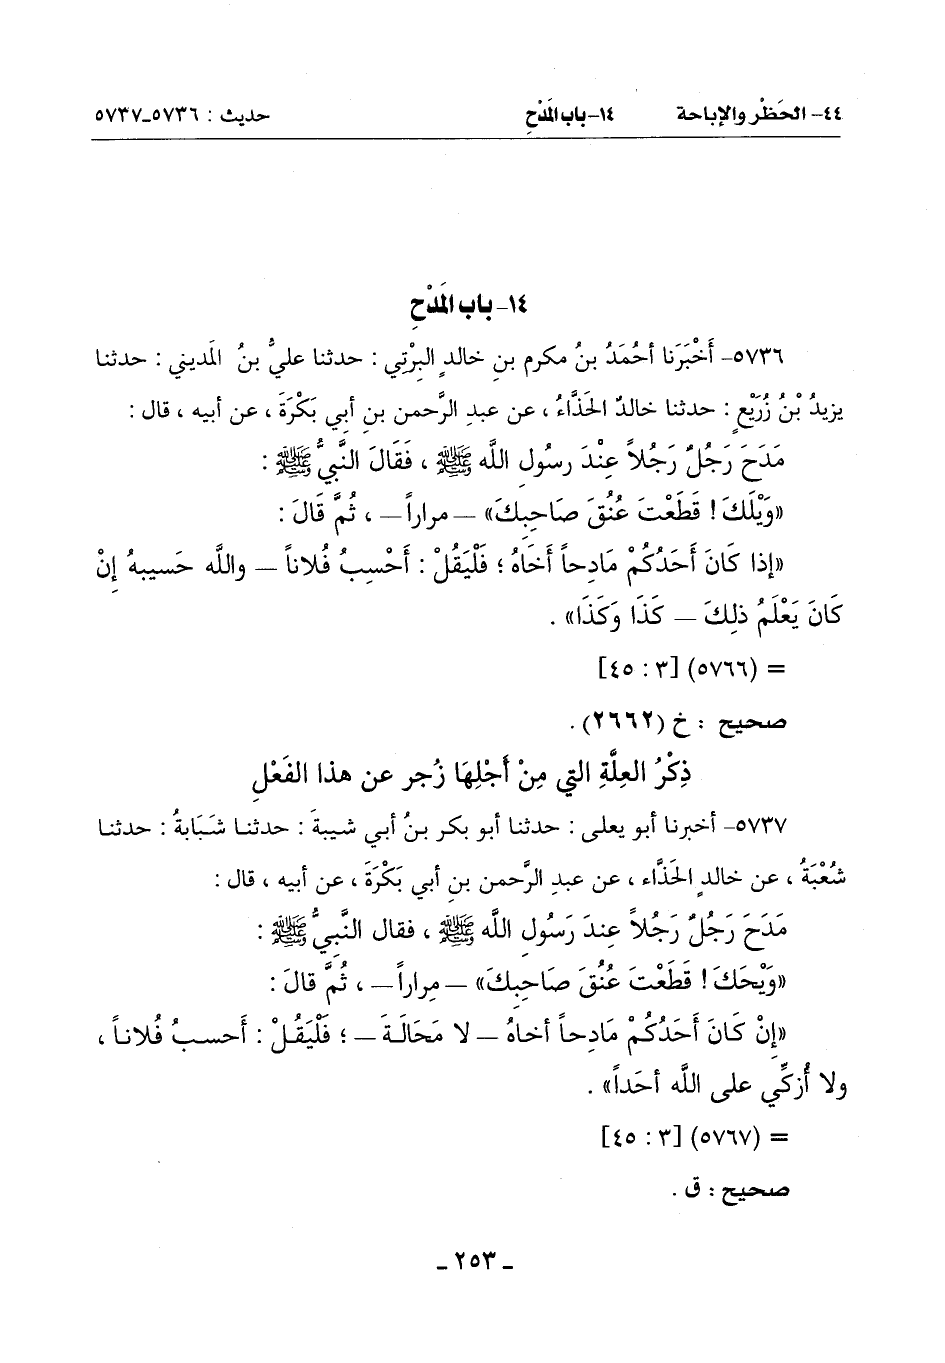 ٤٤- الحَظْر والإباحة ١٤-باب المَدْحِ حديث : ٥٧٣٦-٥٧٣٧
١٤- باب المَدْحِ
٥٧٣٦- أَخْبَرَنا أحْمَدُ بنُ مكرم بنِ خالدٍ البِرْتِي : حدثنا عليُّ بنُ المَديني : حدثنا
يزيدُ بْنُ زُرَيْعٍ : حدثنا خالدٌ الحَذَّاءُ ، عن عبدِ الرَّحمن بنِ أبي بَكْرَةَ ، عن أبيه ، قال :
مَدَحَ رَجُلٌ رَجُلاً عِنْدَ رسُولِ اللَّه ﷺ ، فَقَالَ النَّبيُّ ﷺ :
«وَيْلَكَ ! قَطَعْتَ عُنُقَ صَاحِبِكَ» – مراراً – ، ثُمَّ قَالَ :
«إذا كَانَ أَحَدُكُمْ مَادِحاً أَخَاهُ ؛ فَلْيَقُلْ : أَحْسِبُ فُلاناً – واللَّه حَسيبهُ إنْ
كَانَ يَعْلَمُ ذلِكَ – كَذَا وَكَذَا» .
= (٥٧٦٦) [٣ : ٤٥]
صحيح : خ (٢٦٦٢) .
ذِكْرُ العِلَّةِ التي مِنْ أَجْلِهَا زُجر عن هذا الفَعْلِ
٥٧٣٧- أخبرنا أبو يعلى : حدثنا أبو بكر بنُ أبي شيبةَ : حدثنا شَبَابةُ : حدثنا
شُعْبَةُ ، عن خالدٍ الحَذَّاء ، عن عبدِ الرَّحمن بنِ أبي بَكْرَةَ ، عن أبيه ، قال :
مَدَحَ رَجُلٌ رَجُلاً عِندَ رَسُولِ اللَّه ﷺ ، فقال النَّبيُّ ﷺ :
«وَيْحَكَ ! قَطَعْتَ عُنُقَ صَاحِبِكَ» – مِراراً – ، ثُمَّ قالَ :
«إِنْ كَانَ أَحَدُكُمْ مَادِحاً أخاهُ – لا مَحَالَةَ – ؛ فَلْيَقُلْ : أَحسبُ فُلاناً ،
ولا أُزكِّي على اللَّه أحَداً» .
= (٥٧٦٧) [٣ : ٤٥]
صحيح : ق .
- ٢٥٣ -